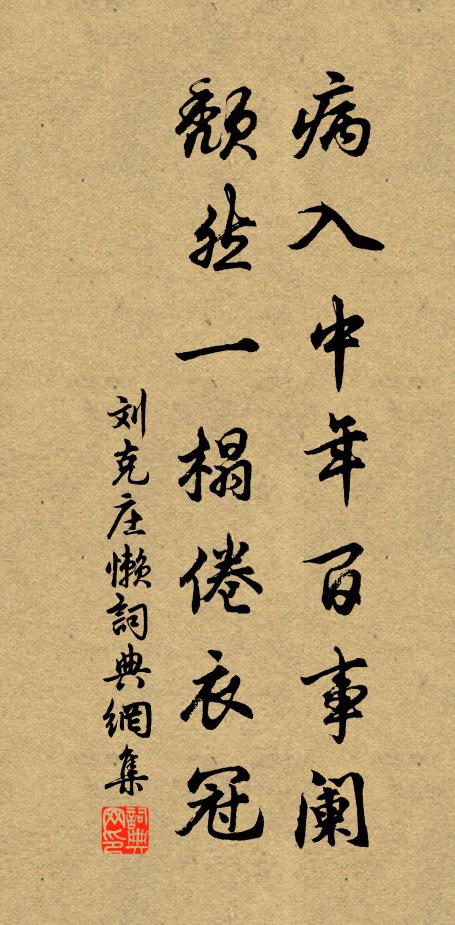 病入中年百事阑
颓然一榻倦衣冠
刘克庄懒词典網集
詞典網印